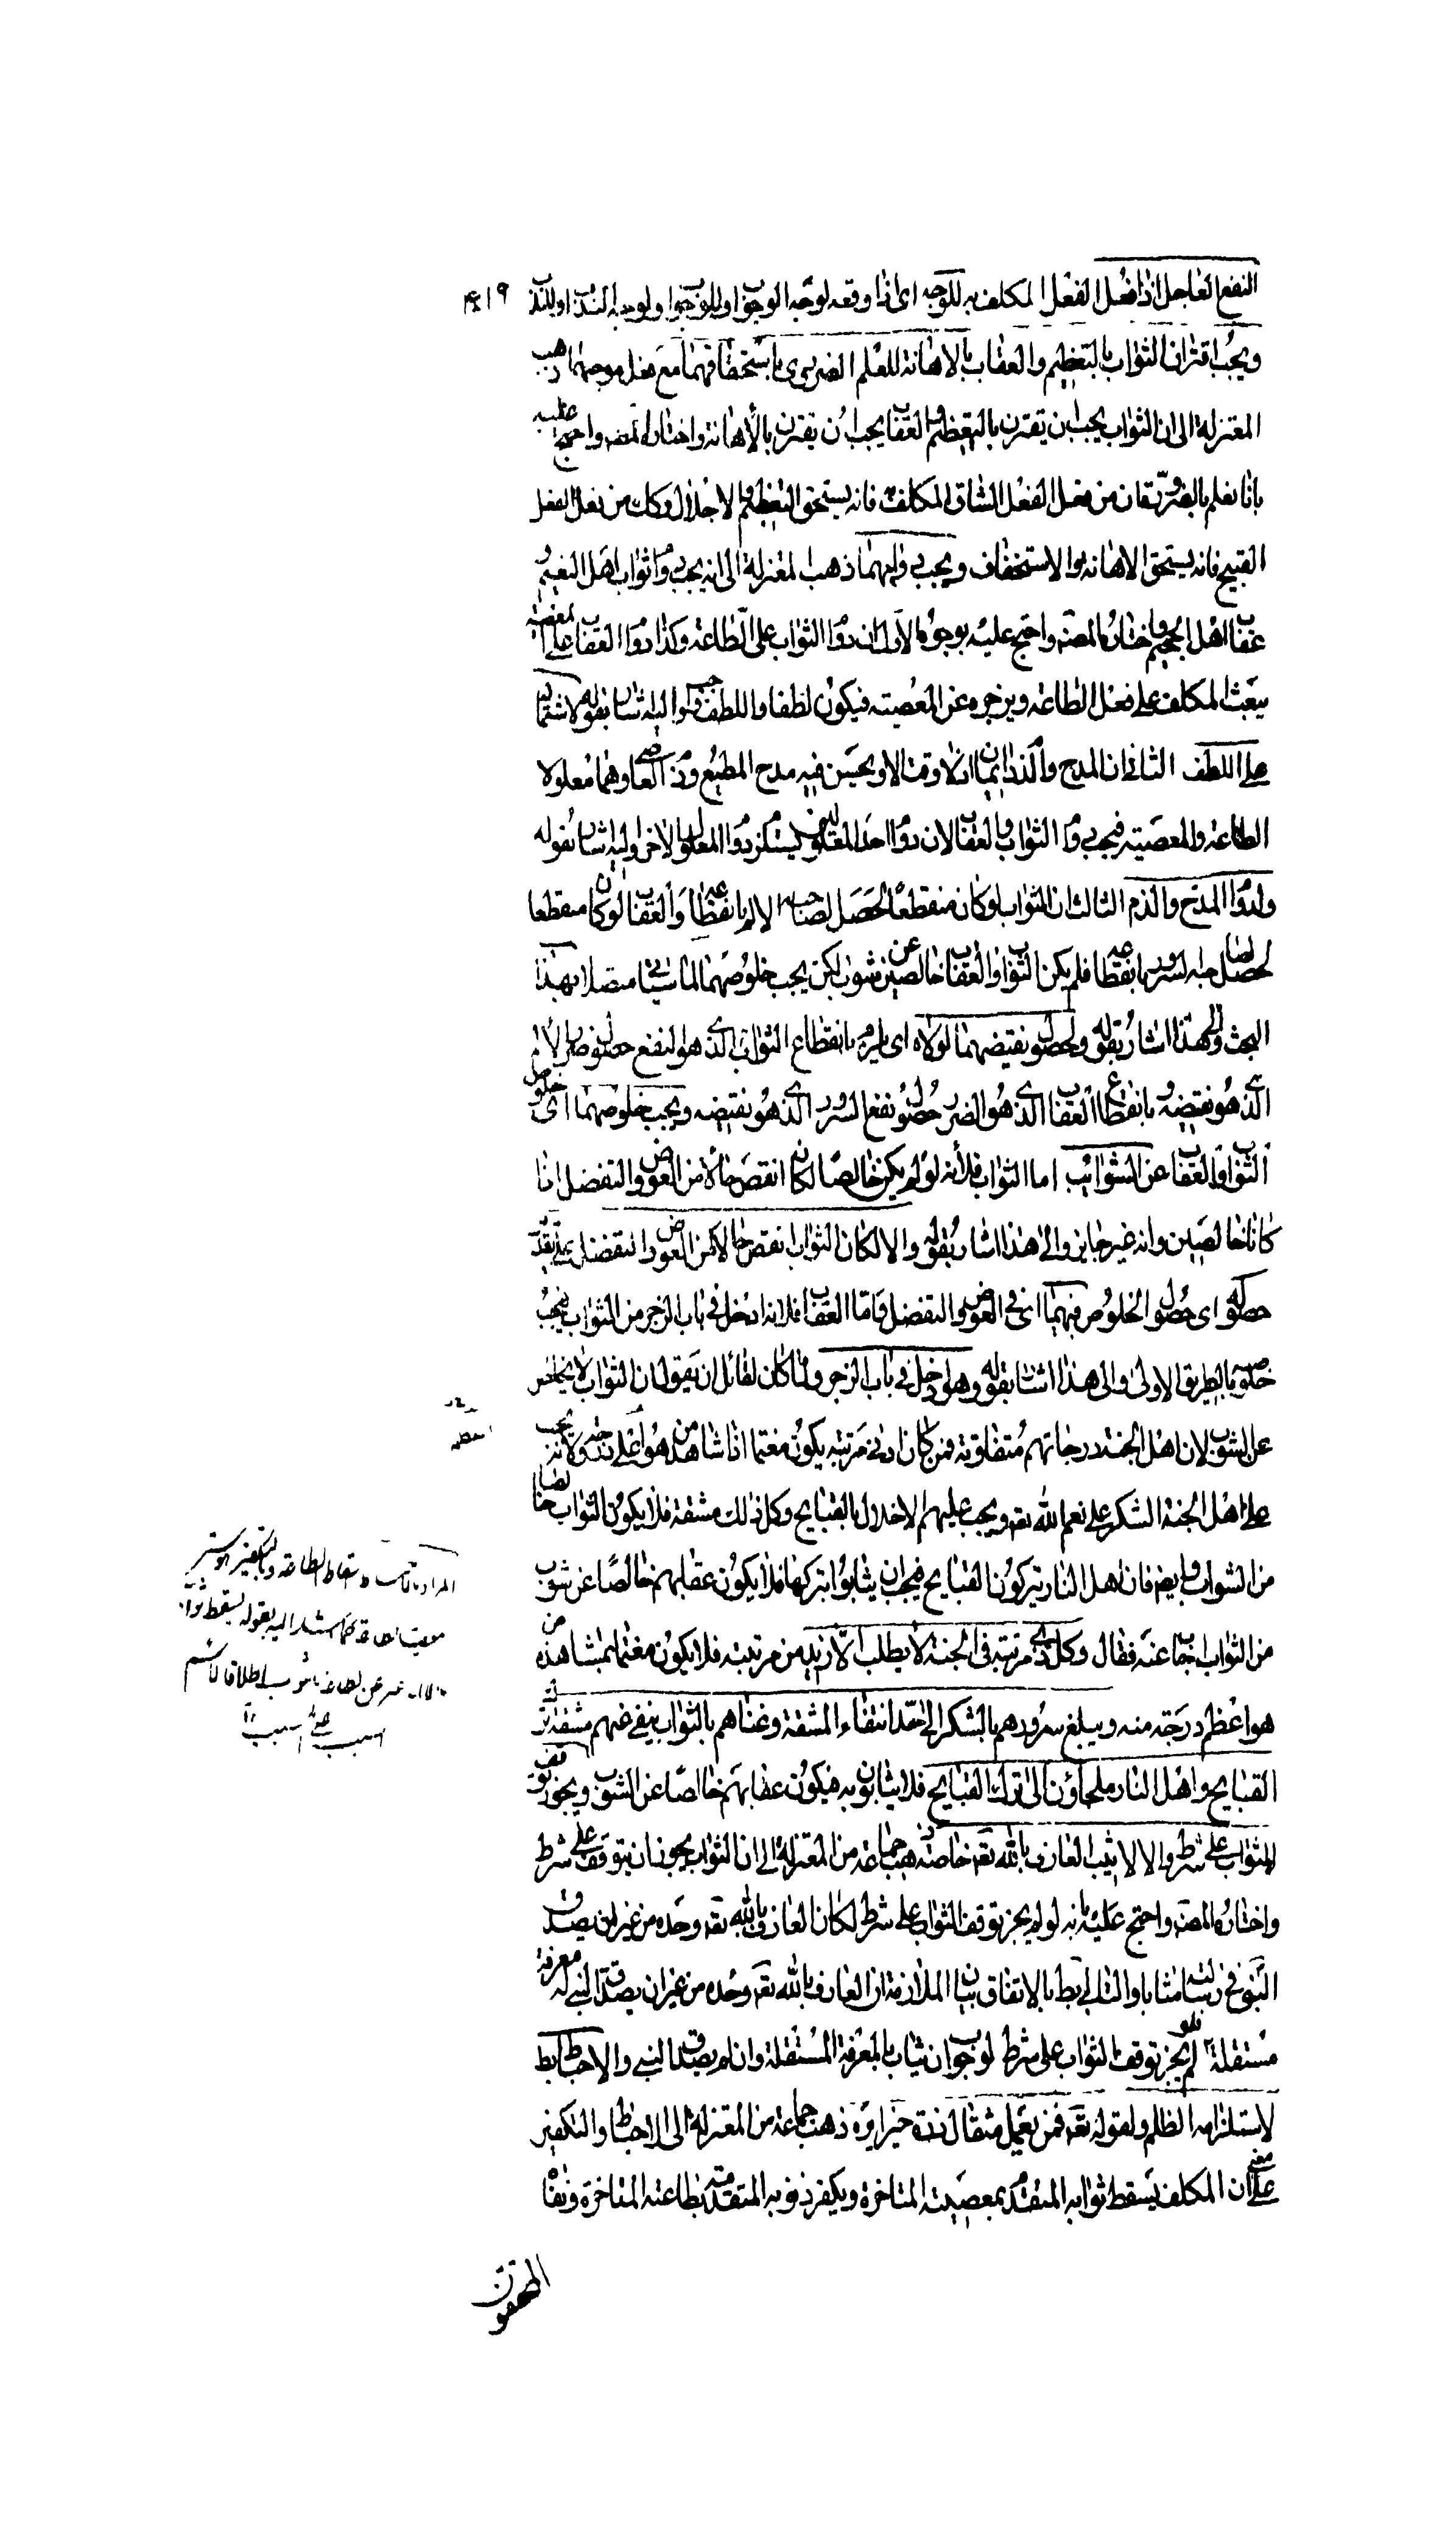 النفع العاجل اذا فعل الفعل المكلف به للوجه اى اذا اوقعه لوجه الوجوب او للوجوب او لوجه الندب او للندب
ويجب اقتران الثواب بالتعظيم والعقاب بالاهانة للعلم الضرورى باستحقاقهما مع فعل موجبهما ذهب
المعتزلة الى ان الثواب يجب ان يقترن بالتعظيم والعقاب يجب ان يقترن بالاهانة واختاره المصه واحتج عليه
بانا نعلم بالضرورة ان من فعل الفعل الشاق المكلف به فانه يستحق التعظيم والاجلال وكك من فعل الفعل
القبيح فانه يستحق الاهانة والاستخفاف ويجب دوامهما ذهب المعتزلة الى انه يجب دوام ثواب اهل النعيم و
عقاب اهل الجحيم واختاره المصه واحتج عليه بوجوه الاول ان دوام الثواب على الطاعة وكذا دوام العقاب على المعصية
يبعث المكلف على فعل الطاعة ويزجره عن المعصية فيكون لطفا واللطف واجب واليه اشار بقوله لاشتماله
على اللطف الثانى ان المدح والذم دايمان اذ لا وقت الا ويحسن فيه مدح المطيع وذم العاصى وهما معلولا
الطاعة والمعصية فيجب دوام الثواب والعقاب لان دوام احد المعلولين يستلزم دوام المعلول الاخر واليه اشار بقوله
ولدوام المدح والذم الثالث ان الثواب لو كان منقطعا لحصل لصاحبه الالم بانقطاعه والعقاب لو كان منقطعا
لحصل لصاحبه السرور بانقطاعه فلم يكن الثواب والعقاب خالصين عن شوب لكن يجب خلوصهما لما سياتى متصلا بهذا
البحث والى هذا اشار بقوله ولحصول نقيضهما لولاه اى يلزم بانقطاع الثواب الذى هو النفع حصول ضرر الالم
الذى هو نقيضه و بانقطاع العقاب الذى هو الضرر حصول نفع السرور الذى هو نقيضه ويجب خلوصهما اى خلوص
الثواب والعقاب عن الشوائب اما الثواب فلانه لو لم يكن خالصا لكان انقص حالا من العوض والتفضل اذا
كانا خالصين وانه غير جايز والى هذا اشار بقوله والا لكان الثواب انقص حالا من العوض والتفضل على تقدير
حصوله اى حصول الخلوص فيهما اى فى العوض والتفضل واما العقاب فلانه ادخل فى باب الزجر من الثواب فيجب
خلوصه بالطريق الاولى والى هذا اشار بقوله وهو ادخل فى باب الزجر ولما كان لقائل ان يقول ان الثواب لا يخلص
عن الشوب لان اهل الجنة درجاتهم متفاوتة فمن كان ادنى مرتبة يكون مغتما اذا شاهد من هو اعلى درجة ولانه يجب
على اهل الجنة الشكر على نعم الله تعه ويجب عليهم الاخلال بالقبايح وكل ذلك مشقة فلا يكون الثواب خالصا
من الشواب وايضا فان اهل النار يتركون القبايح فيجب ان يثابوا بتركها فلا يكون عقابهم خالصا عن شوب
من الثواب اجاب عنه فقال وكل ذى مرتبة فى الجنة لا يطلب الازيد من مرتبته فلا يكون مغتما بمشاهدة من
هو اعظم درجة منه ويبلغ سرورهم بالشكر الى حد انتفاء المشقة وغناهم بالثواب ينفى عنهم مشقة ترك
القبايح واهل النار ملجاؤن الى ترك القبايح فلا يثابون به فيكون عقابهم خالصا عن الشوب ويجوز توقف
الثواب على شرط والا لاثيب العارف بالله تعه خاصة ذهب جماعة من المعتزلة الى ان الثواب يجوز ان يتوقف على شرط
واختاره المصه واحتج عليه بانه لو لم يجز توقف الثواب على شرط لكان العارف بالله تعه وحده من غير ان يصدق
النبى فى رسالته مثابا والتالى بط بالاتفاق بيان الملازمة ان العارف بالله تعه وحده من غير ان يصدق النبى له معرفة
مستقلة فلو لم يجز توقف الثواب على شرط لوجب ان يثاب بالمعرفة المستقلة وان لم يصدق النبى والاحباط بط
لاستلزامه الظلم ولقوله تعه فمن يعمل مثقال ذرة خيرا يره ذهب جماعة من المعتزلة الى الاحباط والتكفير
على معنى ان المكلف يسقط ثوابه المتقدم بمعصيته المتاخرة ويكفر ذنوبه المتقدمة بطاعته المتاخرة ونفاه
المحققون